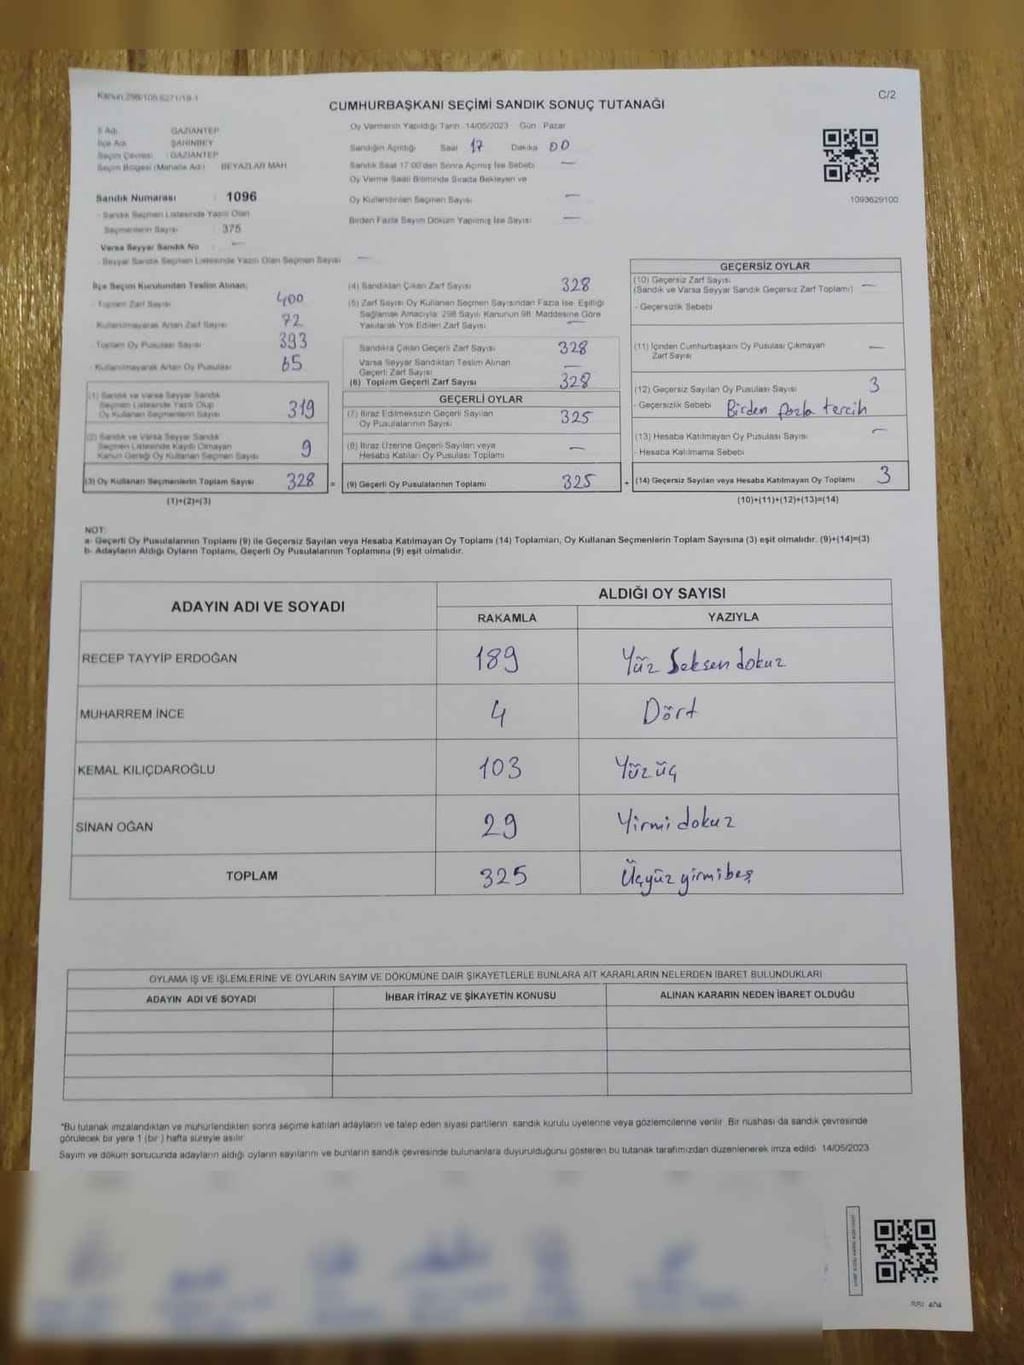 Kanun:298/105,6271/19-1
C/2
CUMHURBAŞKANI SEÇİMİ SANDIK SONUÇ TUTANAĞI
İl Adı: GAZİANTEP
İlçe Adı: ŞAHİNBEY
Seçim Çevresi: GAZİANTEP
Seçim Bölgesi (Mahalle Adı): BEYAZLAR MAH
Sandık Numarası: 1096
- Sandık Seçmen Listesinde Yazılı Olan
Seçmenlerin Sayısı: 375
Varsa Seyyar Sandık No: —
- Seyyar Sandık Seçmen Listesinde Yazılı Olan Seçmen Sayısı —
Oy Vermenin Yapıldığı Tarih: 14/05/2023 Gün: Pazar
Sandığın Açıldığı Saat 17 Dakika 00
Sandık Saat 17:00'den Sonra Açılmış İse Sebebi —
Oy Verme Saati Bitiminde Sırada Bekleyen ve
Oy Kullandırılan Seçmen Sayısı —
Birden Fazla Sayım Döküm Yapılmış İse Sayısı —
1093629100
İlçe Seçim Kurulundan Teslim Alınan;
- Toplam Zarf Sayısı 400
- Kullanılmayarak Artan Zarf Sayısı 72
- Toplam Oy Pusulası Sayısı 393
- Kullanılmayarak Artan Oy Pusulası 65
(1) Sandık ve Varsa Seyyar Sandık
Seçmen Listesinde Yazılı Olup
Oy Kullanan Seçmenlerin Sayısı 319
(2) Sandık ve Varsa Seyyar Sandık
Seçmen Listesinde Kayıtlı Olmayan
Kanun Gereği Oy Kullanan Seçmen Sayısı 9
(3) Oy Kullanan Seçmenlerin Toplam Sayısı 328 =
(1)+(2)=(3)
(4) Sandıktan Çıkan Zarf Sayısı 328
(5) Zarf Sayısı Oy Kullanan Seçmen Sayısından Fazla İse, Eşitliği
Sağlamak Amacıyla, 298 Sayılı Kanunun 98. Maddesine Göre
Yakılarak Yok Edilen Zarf Sayısı —
Sandıkta Çıkan Geçerli Zarf Sayısı 328
Varsa Seyyar Sandıktan Teslim Alınan
Geçerli Zarf Sayısı —
(6) Toplam Geçerli Zarf Sayısı 328
GEÇERLİ OYLAR
(7) İtiraz Edilmeksizin Geçerli Sayılan
Oy Pusulalarının Sayısı 325
(8) İtiraz Üzerine Geçerli Sayılan veya
Hesaba Katılan Oy Pusulası Toplamı —
(9) Geçerli Oy Pusulalarının Toplamı 325 +
GEÇERSİZ OYLAR
(10) Geçersiz Zarf Sayısı
(Sandık ve Varsa Seyyar Sandık Geçersiz Zarf Toplamı) —
- Geçersizlik Sebebi
(11) İçinden Cumhurbaşkanı Oy Pusulası Çıkmayan
Zarf Sayısı —
(12) Geçersiz Sayılan Oy Pusulası Sayısı 3
- Geçersizlik Sebebi Birden fazla tercih
(13) Hesaba Katılmayan Oy Pusulası Sayısı —
- Hesaba Katılmama Sebebi
(14) Geçersiz Sayılan veya Hesaba Katılmayan Oy Toplamı 3
(10)+(11)+(12)+(13)=(14)
NOT:
a- Geçerli Oy Pusulalarının Toplamı (9) ile Geçersiz Sayılan veya Hesaba Katılmayan Oy Toplamı (14) Toplamları, Oy Kullanan Seçmenlerin Toplam Sayısına (3) eşit olmalıdır. (9)+(14)=(3)
b- Adayların Aldığı Oyların Toplamı, Geçerli Oy Pusulalarının Toplamına (9) eşit olmalıdır.
ADAYIN ADI VE SOYADI
ALDIĞI OY SAYISI
RAKAMLA YAZIYLA
RECEP TAYYİP ERDOĞAN 189 Yüz Seksen dokuz
MUHARREM İNCE 4 Dört
KEMAL KILIÇDAROĞLU 103 Yüzüç
SİNAN OĞAN 29 Yirmi dokuz
TOPLAM 325 Üçyüz yirmibeş
OYLAMA İŞ VE İŞLEMLERİNE VE OYLARIN SAYIM VE DÖKÜMÜNE DAİR ŞİKAYETLERLE BUNLARA AİT KARARLARIN NELERDEN İBARET BULUNDUKLARI
ADAYIN ADI VE SOYADI İHBAR İTİRAZ VE ŞİKAYETİN KONUSU ALINAN KARARIN NEDEN İBARET OLDUĞU
*Bu tutanak imzalandıktan ve mühürlendikten sonra seçime katılan adayların ve talep eden siyasi partilerin sandık kurulu üyelerine veya gözlemcilerine verilir. Bir nüshası da sandık çevresinde
görülecek bir yere 1 (bir ) hafta süreyle asılır.
Sayım ve döküm sonucunda adayların aldığı oyların sayılarını ve bunların sandık çevresinde bulunanlara duyurulduğunu gösteren bu tutanak tarafımızdan düzenlenerek imza edildi. 14/05/2023